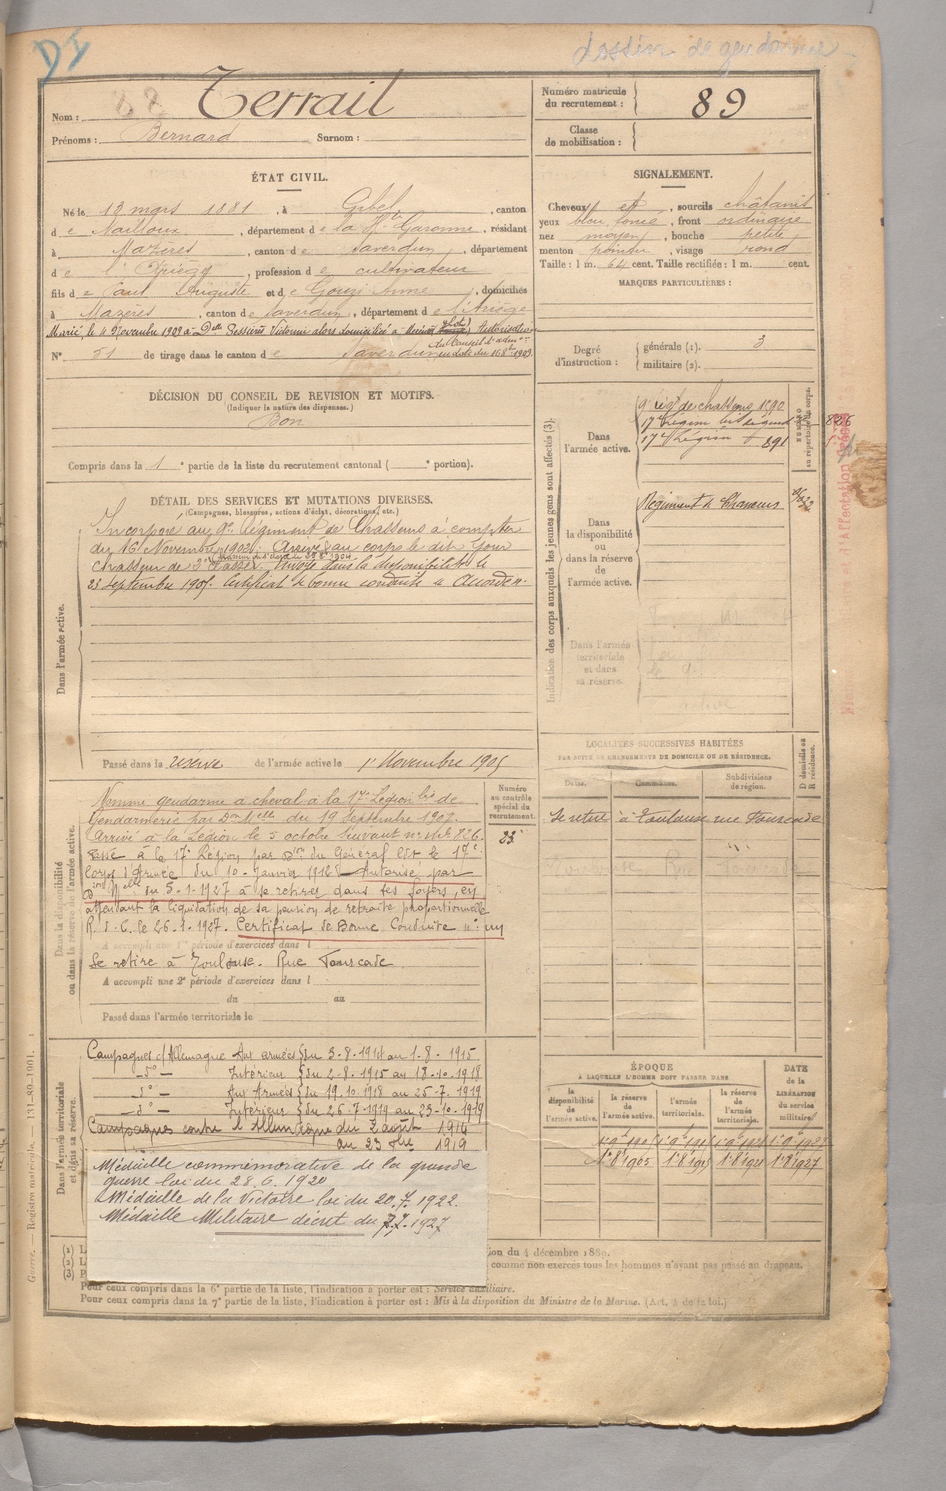 DY
dossier de gendarme
Nom : Terrail
Prénoms : Bernard Surnom :
Numéro matricule du recrutement : 89
Classe de mobilisation :
ÉTAT CIVIL.
Né le 13 mars 1881, à Gibel, canton
de Nailloux, département de la Hte Garonne, résidant
à Mazères, canton de Saverdun, département
de l'Ariège, profession de cultivateur
fils de Paul Auguste et de Gouzi Anne, domiciliés
à Mazères, canton de Saverdun, département de l'Ariège
Marié le 4 Novembre 1909 à Delle Victorine alors domiciliée à Autorisation
du Conseil d'admon
N° 51 de tirage dans le canton de Saverdun en date du 16 8bre 1909.
SIGNALEMENT.
Cheveux et , sourcils châtains
yeux bleu foncé, front ordinaire
nez moyen, bouche petite
menton pointu, visage rond
Taille : 1 m. 64 cent. Taille rectifiée : 1 m. cent.
MARQUES PARTICULIÈRES :
Degré d'instruction : générale (1). 3
militaire (2).
DÉCISION DU CONSEIL DE REVISION ET MOTIFS.
(Indiquer la nature des dispenses.)
Bon
Compris dans la 1e partie de la liste du recrutement cantonal ( e portion).
DÉTAIL DES SERVICES ET MUTATIONS DIVERSES.
(Campagnes, blessures, actions d'éclat, décorations, etc.)
Dans l'armée active.
Incorporé au 9e Régiment de Chasseurs à compter
du 16 Novembre 1902. Arrivé au corps le dit jour
chasseur de 2e classe. Envoyé dans la disponibilité le
23 septembre 1905. Certificat de bonne conduite "Accordé".
Passé dans la réserve de l'armée active le 1er Novembre 1905
Indication des corps auxquels les jeunes gens sont affectés (3).
Dans l'armée active.
9e régt de chasseurs 1290
17e Légion bis de gend 826
17e Légion 891
NUMÉRO au répertoire du corps.
Dans la disponibilité ou dans la réserve de l'armée active.
Régiment de Chasseurs
Dans l'armée territoriale et dans sa réserve.
LOCALITÉS SUCCESSIVES HABITÉES
PAR SUITE DE CHANGEMENTS DE DOMICILE OU DE RÉSIDENCE.
Dates. Communes. Subdivisions de région. D domicile ou R résidence.
Se retire à Toulouse rue Fourcade
Dans la disponibilité ou dans la réserve de l'armée active.
Numéro au contrôle spécial du recrutement.
23
Nommé gendarme à cheval à la 17e Légion bis de
Gendarmerie par Don Melle du 19 Septembre 1907.
Arrivé à la Légion le 5 octobre suivant no mle 826.
Passé à la 17e Légion par Don du Général Cdt le 17e
Corps d'Armée du 10 Janvier 1912. Autorisé par
Don Melle du 5-1-1927 à se retirer dans ses foyers en
attendant la liquidation de sa pension de retraite proportionnelle
R. d. C. le 26.1.1927. Certificat de Bonne Conduite n°
A accompli une 1re période d'exercices dans l
Se retire à Toulouse. Rue Fourcade
A accompli une 2e période d'exercices dans l
du au
Passé dans l'armée territoriale le
Dans l'armée territoriale et dans sa réserve.
Campagnes c/ Allemagne Aux armées du 3-8-1914 au 1-8-1915
-do- Intérieur du 2-8-1915 au 18-10-1918
-do- Aux Armées du 19.10.1918 au 25-7-1919
-do- Intérieur du 26-7-1919 au 23-10-1919
Campagnes contre l'Allemagne du 2 août 1914
au 23 1919
Médaille commémorative de la grande
guerre loi du 28.6.1920
Médaille de la Victoire loi du 20.7.1922.
Médaille Militaire décret du 7.7.1927
ÉPOQUE
À LAQUELLE L'HOMME DOIT PASSER DANS
la disponibilité de l'armée active. la réserve de l'armée active. l'armée territoriale. la réserve de l'armée territoriale.
DATE de la LIBÉRATION du service militaire.
1er 8 1905 1er 8 1915 1er 8 1921 1er 8 1927
(1) L
(2) L
(3) P
tion du 4 décembre 1889.
comme non exercés tous les hommes n'ayant pas passé au drapeau.
Pour ceux compris dans la 6e partie de la liste, l'indication à porter est : Service auxiliaire.
Pour ceux compris dans la 7e partie de la liste, l'indication à porter est : Mis à la disposition du Ministre de la Marine.
Guerre. — Registre matricule. 131-89-1901.